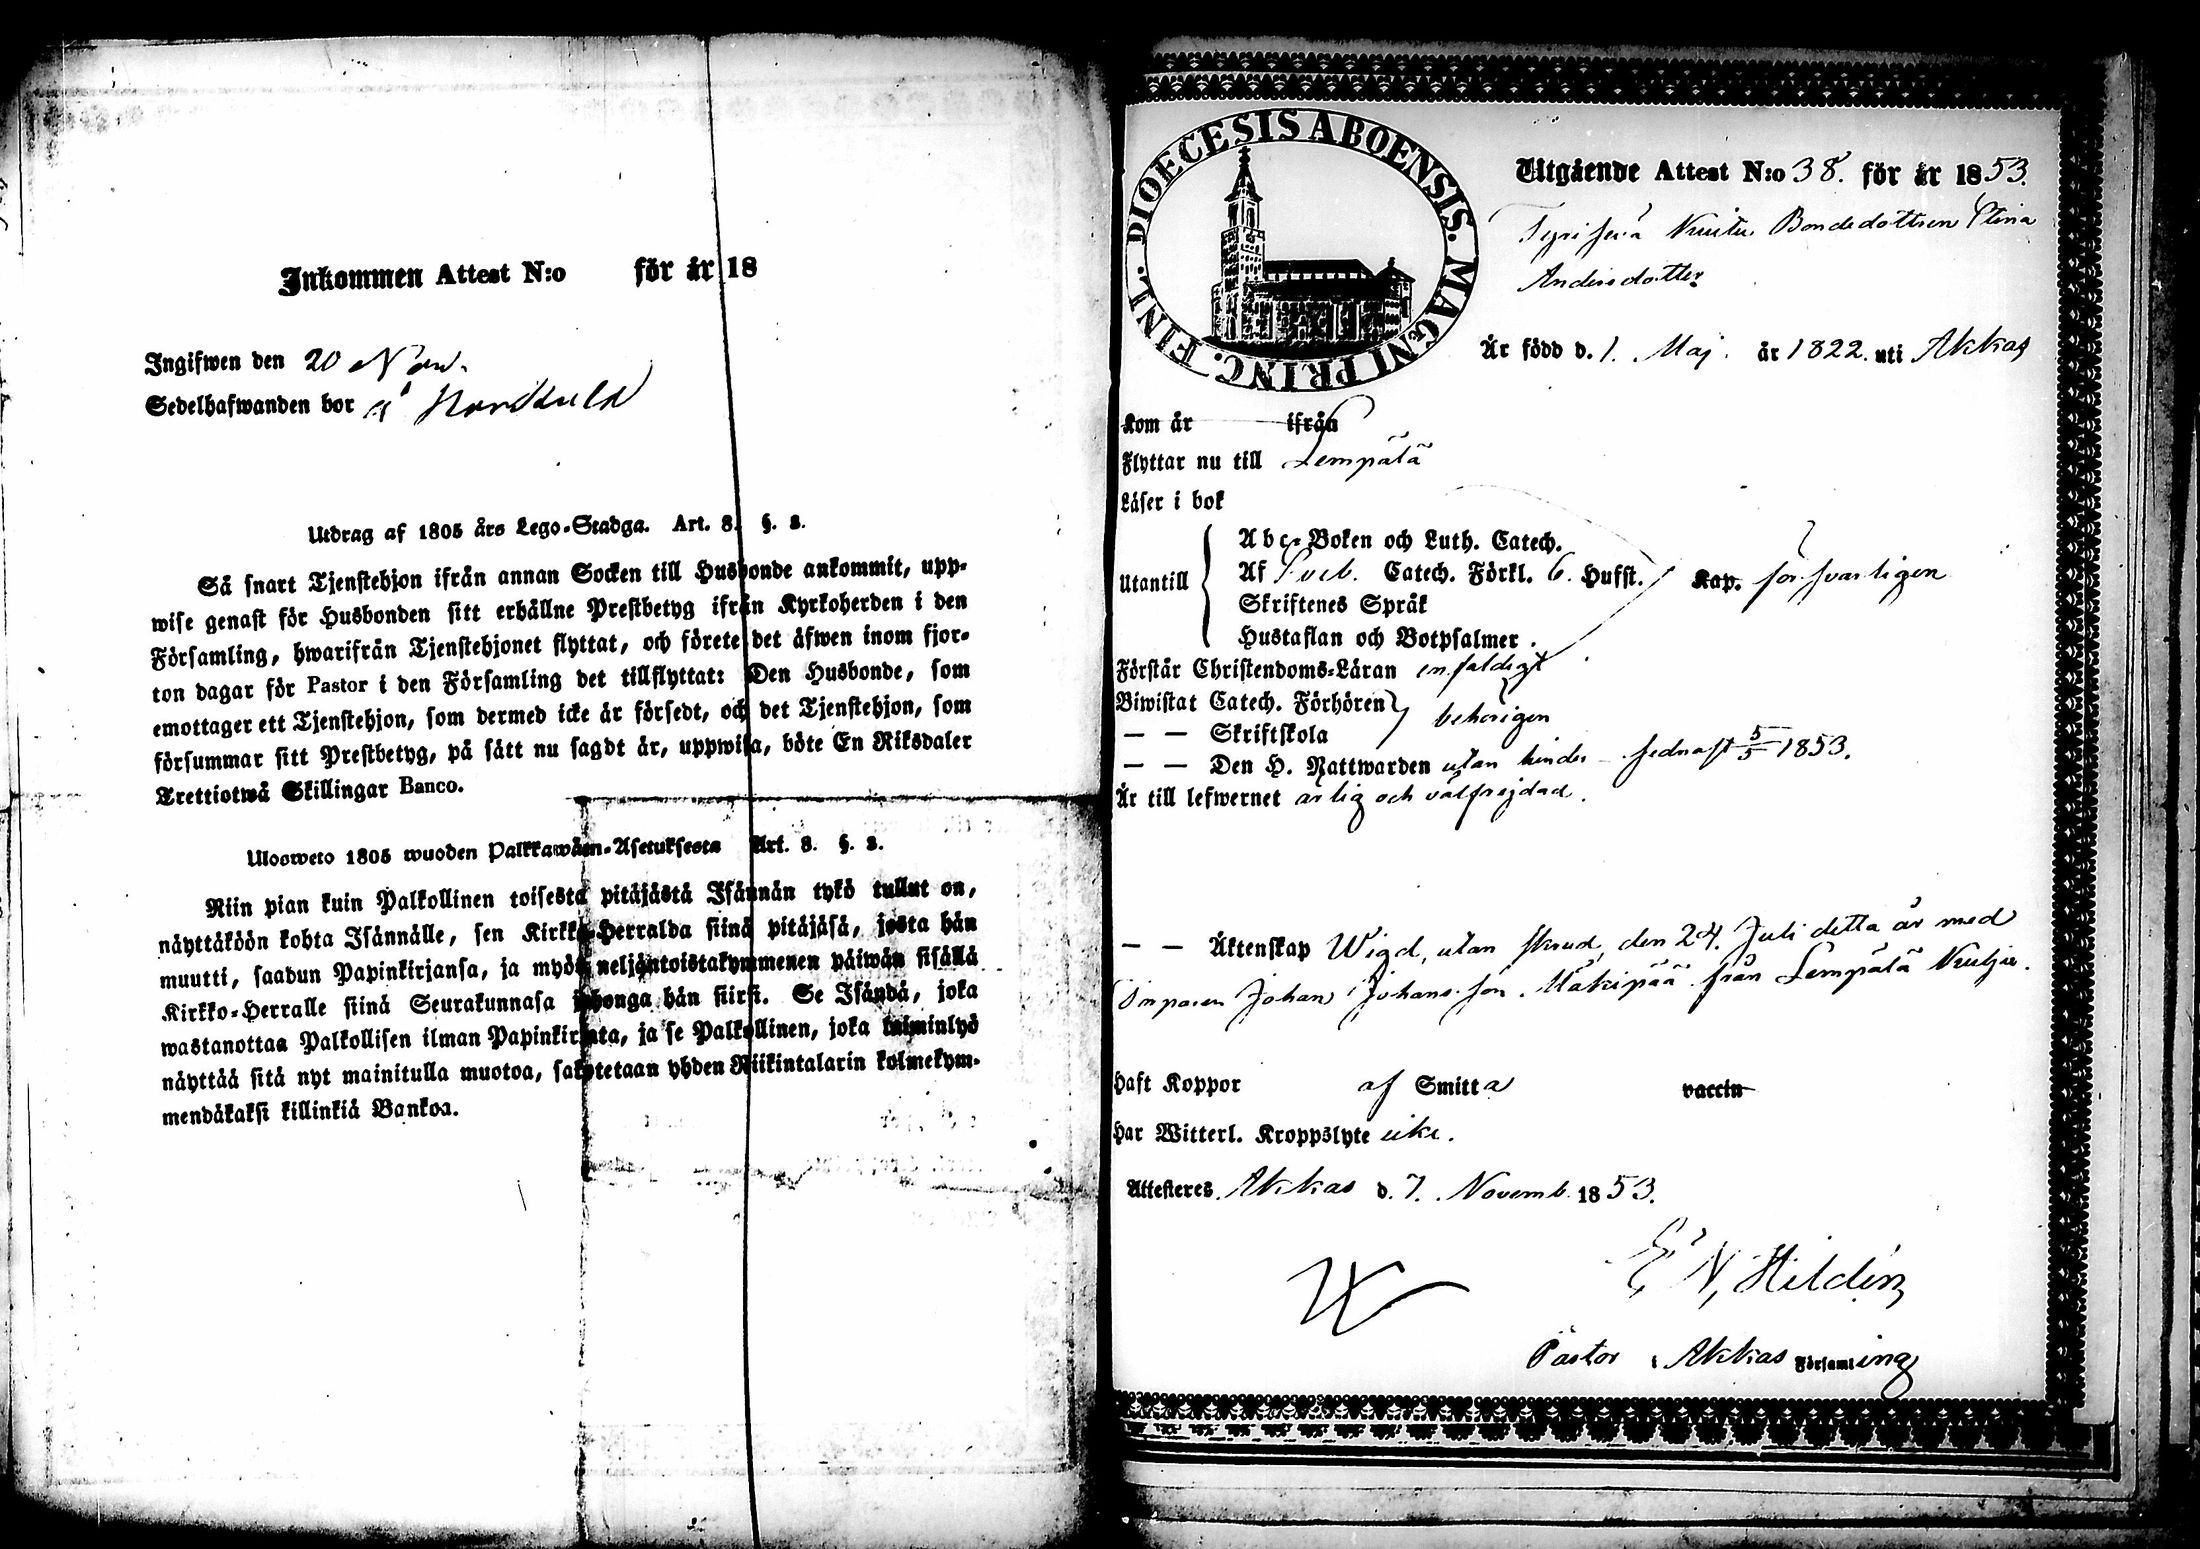 Inkommen Attest N:o för år 18
Ingifwen den 20 Nov.
Sedelhafwanden bor å
Utdrag af 1805 års Lego-Stadga. Art. 8. §. 2.
Så snart Tjenstehjon ifrån annan Socken till Husbonde ankommit, upp-
wise genast för Husbonden sitt erhållne Prestbetyg ifrån Kyrkoherden i den
Församling, hwarifrån Tjenstehjonet flyttat, och förete det äfwen inom fjor-
ton dagar för Pastor i den Församling det tillflyttat: Den Husbonde, som
emottager ett Tjenstehjon, som dermed icke är försedt, och det Tjenstehjon, som
försummar sitt Prestbetyg, på sätt nu sagdt är, uppwisa, böte En Riksdaler
Trettiotwå Skillingar Banco.
Ulosweto 1805 wuoden Palkkawäen-Asetuksesta Art. 8. §. 2.
Niin pian kuin Palkollinen toisesta pitäjästä Isännän tykö tullut on,
näyttäköön kohta Isännälle, sen Kirkko-Herralda siinä pitäjäsä, josta hän
muutti, saadun Papinkirjansa, ja myös neljäntoistakymmenen päiwän sisällä
Kirkko-Herralle siinä Seurakunnasa johonga hän siirsi. Se Isändä, joka
wastanottaa Palkollisen ilman Papinkirjata, ja se Palkollinen, joka laiminlyö
näyttää sitä nyt mainitulla muotoa, sakotetaan yhden Riikintalarin kolmekym-
mendäkaksi killinkiä Bankoa.
DIOECESIS ABOENSIS. MAGNI PRINC. FINL.
Utgående Attest N:o 38. för år 1853.
Bondedottren Stina
Andersdotter
Är född d. 1. Maj. år 1822. uti Akkas
Kom år ifrån
Flyttar nu till Lempälä
Läser i bok
Utantill
Abc-Boken och Luth. Catech.
Af Sveb. Catech. Förkl. 6. Hufst. Kap. försvarligen
Skriftenes Språk
Hustaflan och Botpsalmer.
Förstår Christendoms-Läran enfaldigt
Biwistat Catech. Förhören behörigen
— — Skriftskola
— — Den H. Nattwarden utan hinder sednast 5/5 1853.
Är till lefwernet ärlig och välfrejdad.
— — Äktenskap Wigd, utan skrud, den 24. Juli detta år med
Johan Johansson Mäkipää från Lempälä
Haft Koppor af Smitta vaccin
Har Witterl. Kroppslyte icke.
Attesteres Akkas d. 7. Novemb. 1853.
E N Hildén
Pastor i Akkas Församling